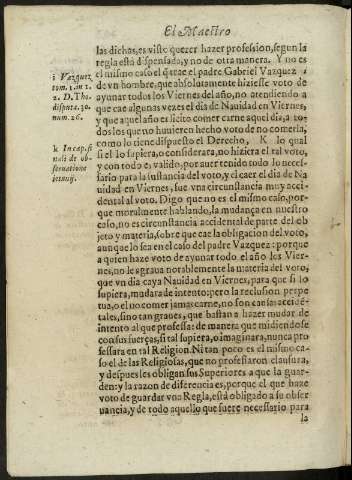 El Maestro
las dichas, es visto querer hazer profession, segun la
regla está dispensada, y no de otra manera. Y no es
el mismo caso el q̃ trae el padre Gabriel Vazquez i
de vn hombre, que absolutamente hiziesse voto de
ayunar todos los Viernes del año, no atendiendo a
que cae algunas vezes el dia de Nauidad en Viernes,
y que aquel año es licito comer carne aquel dia, a to-
dos los que no huuieren hecho voto de no comerla,
como lo tiene dispuesto el Derecho, K lo qual
si el lo supiera, o considerara, no hiziera el tal voto,
y con todo es valido, por auer tenido todo lo neces-
sario para la sustancia del voto, y el caer el dia de Na
uidad en Viernes, fue vna circunstancia muy acci-
dental al voto. Digo que no es el mismo caso, por-
que moralmente hablando, la mudança en nuestro
caso, no es circunstancia accidental de parte del ob
jeto y materia, sobre que cae la obligacion del voto,
aunque lo sea en el caso del padre Vazquez: porque
a quien haze voto de ayunar todo el año los Vier-
nes, no le agraua notablemente la materia del voto,
que vn dia caya Nauidad en Viernes, para que si lo
supiera, mudara de intento: pero la reclusion perpe
tua, o el no comer jamas carne, no son cargas acciden-
tales, sino tan graues, que bastan a hazer mudar de
intento al que professa: de manera que midiendose
con sus fuerças, si tal supiera, o imaginara, nunca pro
fessara en tal Religion. Ni tan poco es el mismo ca-
so el de las Religiosas, que no professaron clausura,
y despues les obligan sus Superiores a que la guar-
den: y la razon de diferencia es, porque el que haze
voto de guardar vna Regla, està obligado a su obser
uancia, y de todo aquello que fuere necessario para
la
i Vazquez
tom. 1. in 1.
2. D. Tho.
disputa. 30.
num. 26.
k Incap. fi
nali de ob-
seruatione
ieiunij.